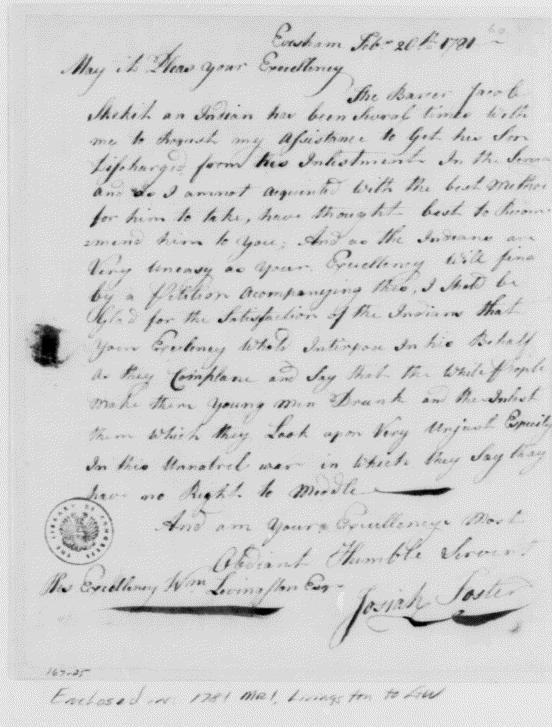 60
Evesham Feby 20th 1781
May it Pleas your Excellency
The Barer Jacob
Skekit an Indian has been Sevral times with
me to Request my Assistance to Get his Son
Discharged from his Inlistment In the Service
and as I am not aquented with the best Method
for him to take, have thought best to Recom=
=mend him to You; And as the Indians are
Very Uneasy as Your Excellency Will find
by a Petition Acompanying this, I Shod be
Glad for the Satisfaction of the Indians that
Your Excelency Whold Interpose In his Behalf
as they Complane and Say that the White People
make there Young men Drunk and the Inlist
them which they Look upon Very Unjust Espicily
In this Unnatrel war in Which they Say they
have no Right to Meddle
And am Your Excellencys Most
Obediant Humble Servent
His Excellency Wm Livingston Esqr
Josiah Foster
THE LIBRARY OF CONGRESS
167-25
Enclosed in: 1781 Mar 1, Livingston to GW